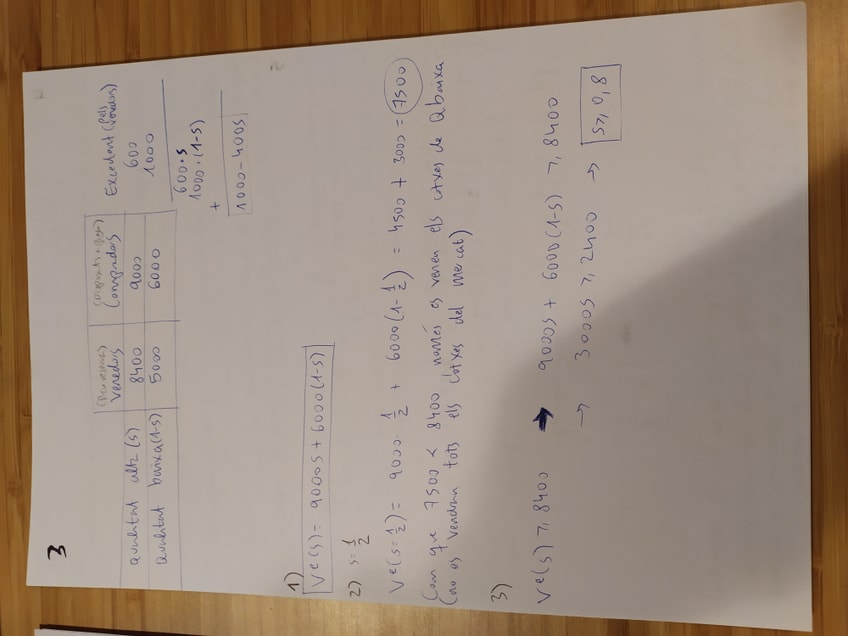 3
(Preu reserva) Venedors
(Disposats a pagar) Compradors
Excedent (pels venedors)
qualitat alta (s) 8400 9000 600
qualitat baixa (1-s) 5000 6000 1000
600·s
1000·(1-s)
+
1000-400s
1)
Ve(s) = 9000s + 6000(1-s)
2) s=1/2
Ve(s=1/2) = 9000·1/2 + 6000(1-1/2) = 4500 + 3000 = 7500
Com que 7500 < 8400 només es venen els cotxes de Q baixa
(no es vendran tots els cotxes del mercat)
3)
Ve(s) ≥ 8400 → 9000s + 6000(1-s) ≥ 8400
→ 3000s ≥ 2400 → s ≥ 0,8